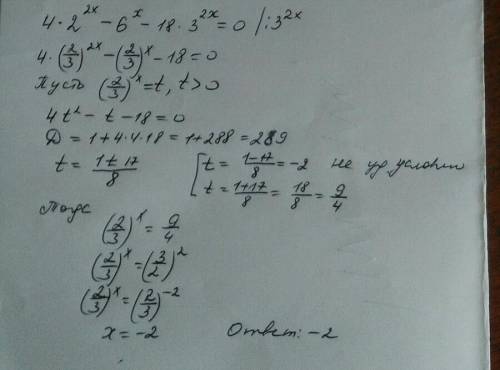 4 · 2^{2x} − 6^x − 18 · 3^{2x} = 0 /:3^{2x}
4 · (2/3)^{2x} − (2/3)^x − 18 = 0
Пусть (2/3)^x = t, t > 0
4t² − t − 18 = 0
D = 1 + 4·4·18 = 1 + 288 = 289
t = (1 ± 17)/8 [ t = (1−17)/8 = −2 не уд условию
t = (1+17)/8 = 18/8 = 9/4
Тогда
(2/3)^x = 9/4
(2/3)^x = (3/2)^2
(2/3)^x = (2/3)^{−2}
x = −2 Ответ: −2